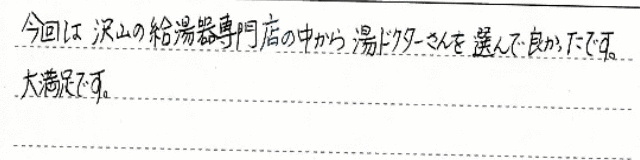 今回は沢山の給湯器専門店の中から湯ドクターさんを選んで良かったです。
大満足です。